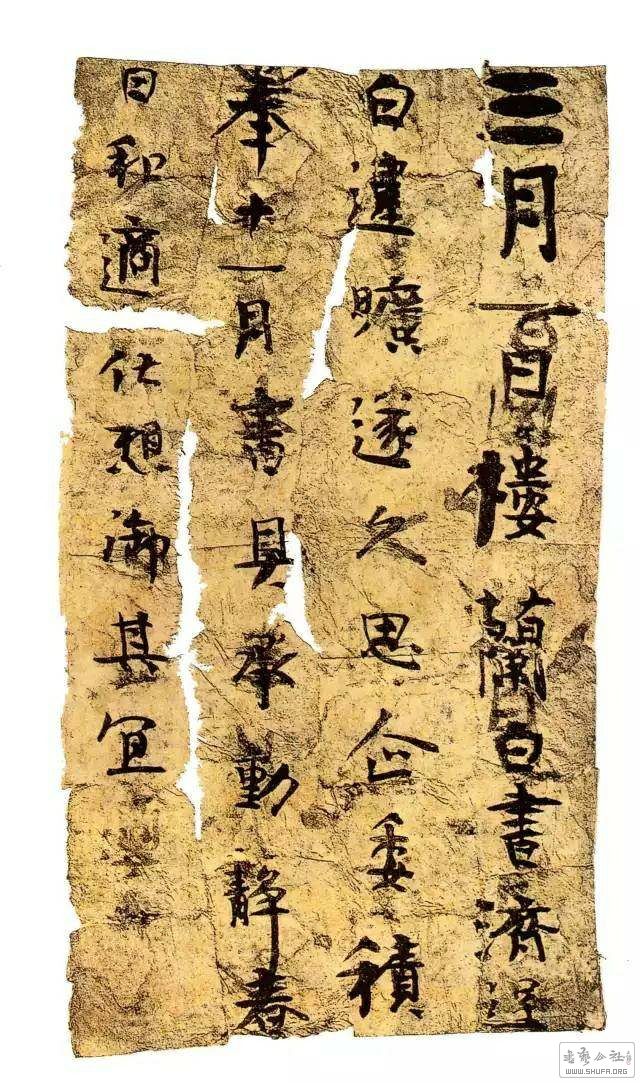 三月一日樓蘭白書濟逞
白違曠遂久思企委積
奉十一月書具承動靜春
日和適伏想御其宜
書艺公社
WWW.SHUFA.ORG